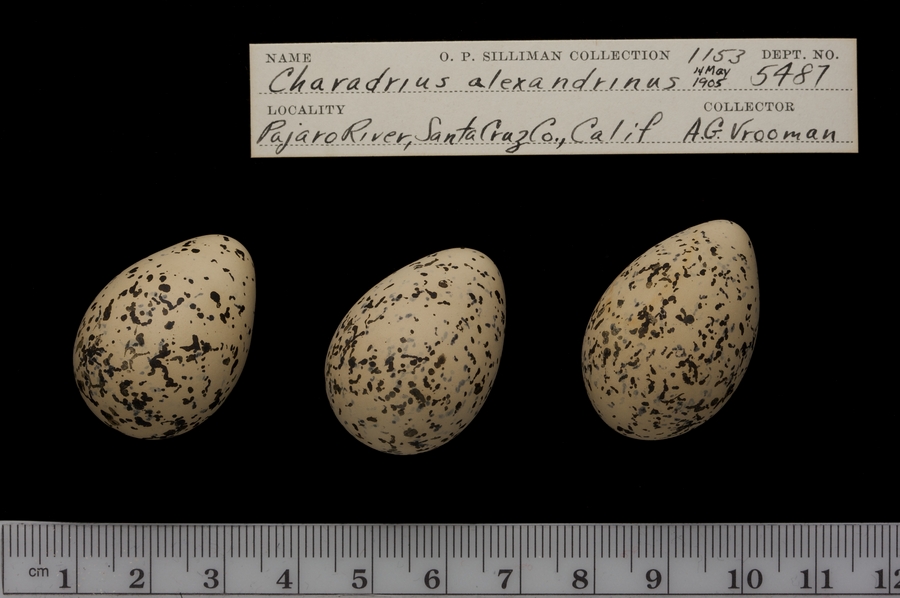 NAME O. P. SILLIMAN COLLECTION 1153 DEPT. NO.
Charadrius alexandrinus 14 May 1905 5487
LOCALITY COLLECTOR
Pajaro River, Santa Cruz Co., Calif A.G. Vrooman
cm 1 2 3 4 5 6 7 8 9 10 11 12